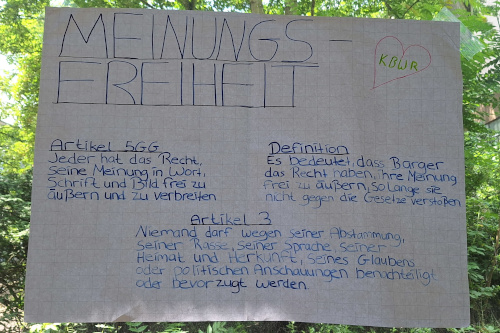 MEINUNGS-
FREIHEIT
KBWR
Artikel 5GG
Jeder hat das Recht,
seine Meinung in Wort,
Schrift und Bild frei zu
äußern und zu verbreiten
Definition
Es bedeutet, dass Bürger
das Recht haben, ihre Meinung
frei zu äußern, solange sie
nicht gegen die Gesetze verstoßen
Artikel 3
Niemand darf wegen seiner Abstammung,
seiner Rasse, seiner Sprache, seiner
Heimat und Herkunft, seines Glaubens
oder politischen Anschauungen benachteiligt
oder bevorzugt werden.